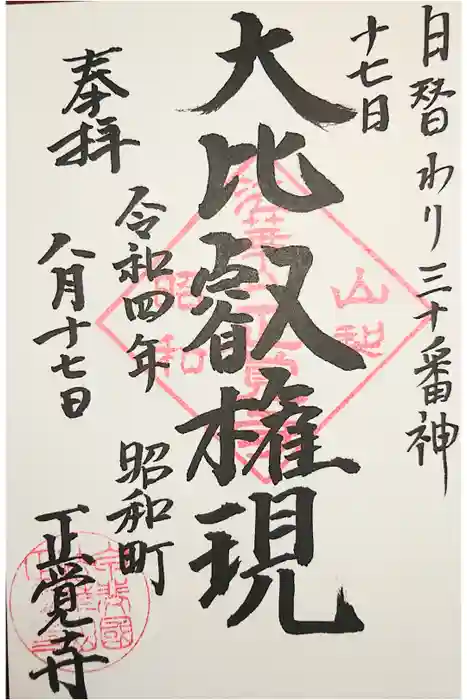 日替わり三十番神
十七日
大比叡権現
奉拝
令和四年
八月十七日
昭和町
正覚寺
山梨
昭和